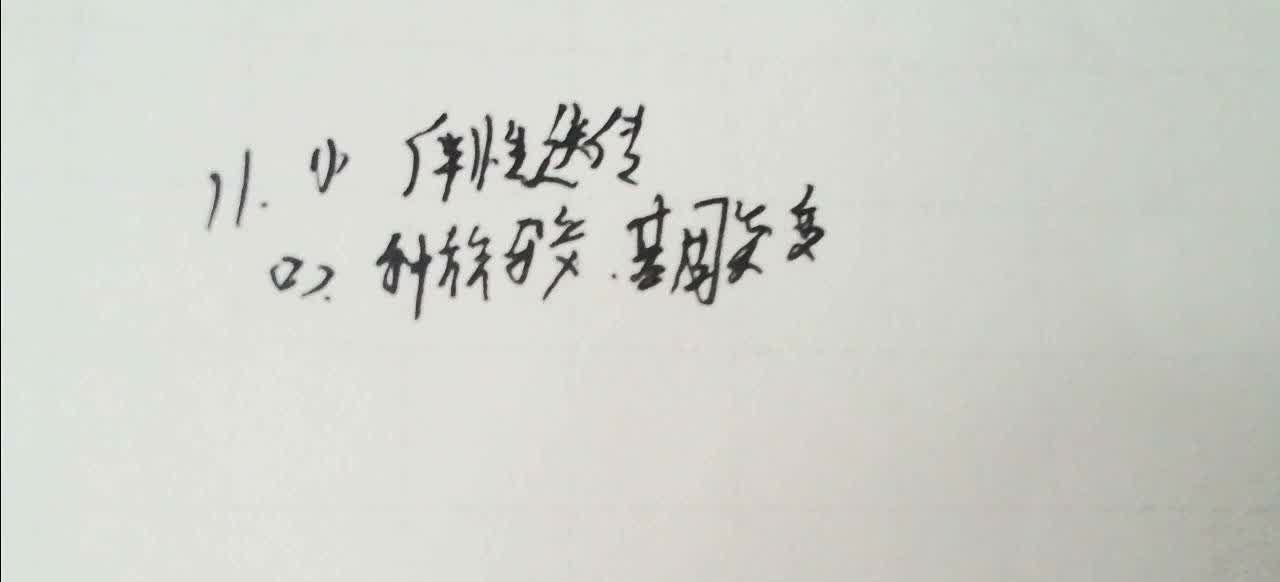 11. (1) 伴性遗传
(2). 种族 . 基因突变